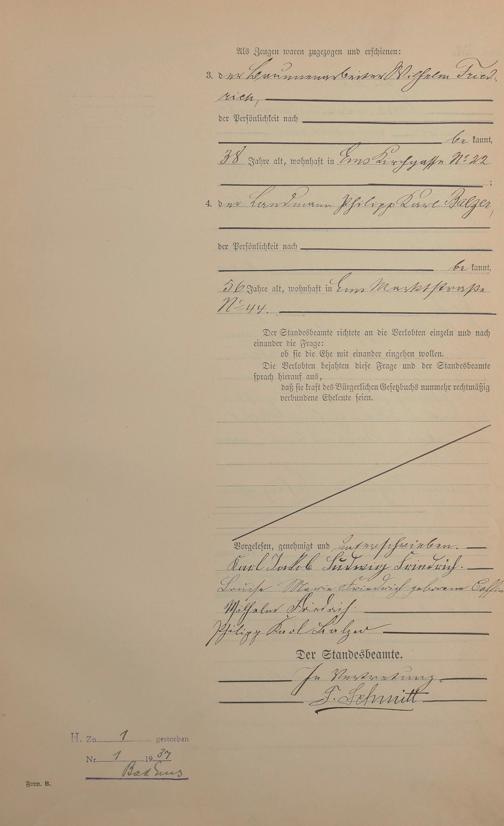 Als Zeugen waren zugezogen und erschienen:
3. der Brunnenarbeiter Wilhelm Fried-
rich,
der Persönlichkeit nach
be kannt,
38 Jahre alt, wohnhaft in Ems Kirchgasse No 22
;
4. der Landmann Philipp Karl Balzer,
der Persönlichkeit nach
be kannt,
56 Jahre alt, wohnhaft in Ems Marktstraße
No 44.
Der Standesbeamte richtete an die Verlobten einzeln und nach
einander die Frage:
ob sie die Ehe mit einander eingehen wollen.
Die Verlobten bejahten diese Frage und der Standesbeamte
sprach hierauf aus,
daß sie kraft des Bürgerlichen Gesetzbuchs nunmehr rechtmäßig
verbundene Eheleute seien.
Vorgelesen, genehmigt und unterschrieben.
Karl Jakob Ludwig Friedrich.
Marie Friedrich geborene
Wilhelm Friedrich
Philipp Karl Balzer
Der Standesbeamte.
In Vertretung.
F. Schmitt
H. Zu 1 gestorben
Nr. 1 1937
Bad Ems
Form. B.